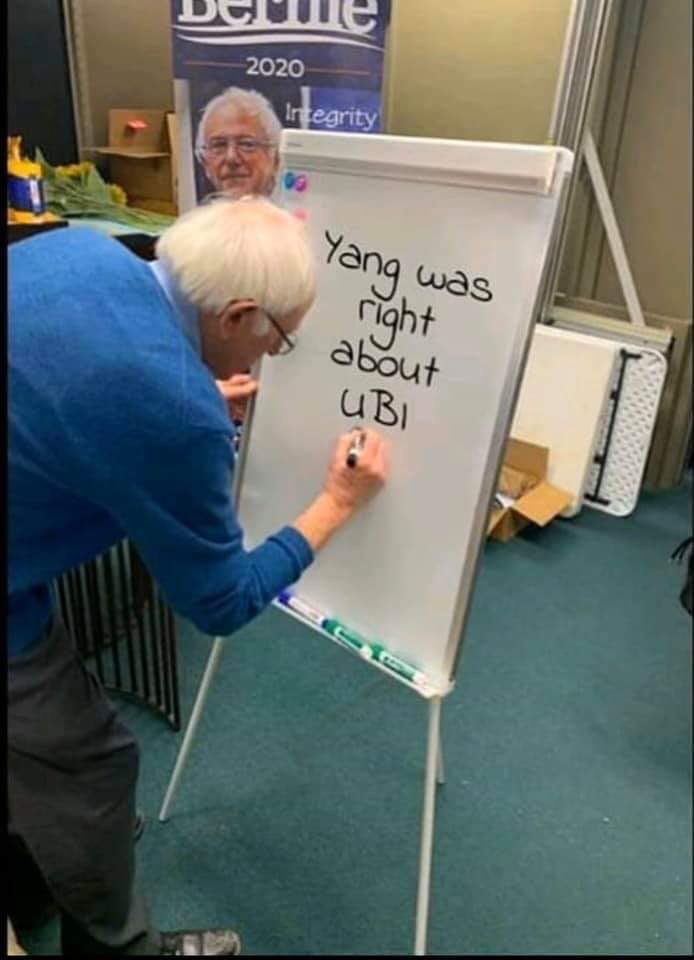 Bernie
2020
Integrity
Yang was
right
about
UBI